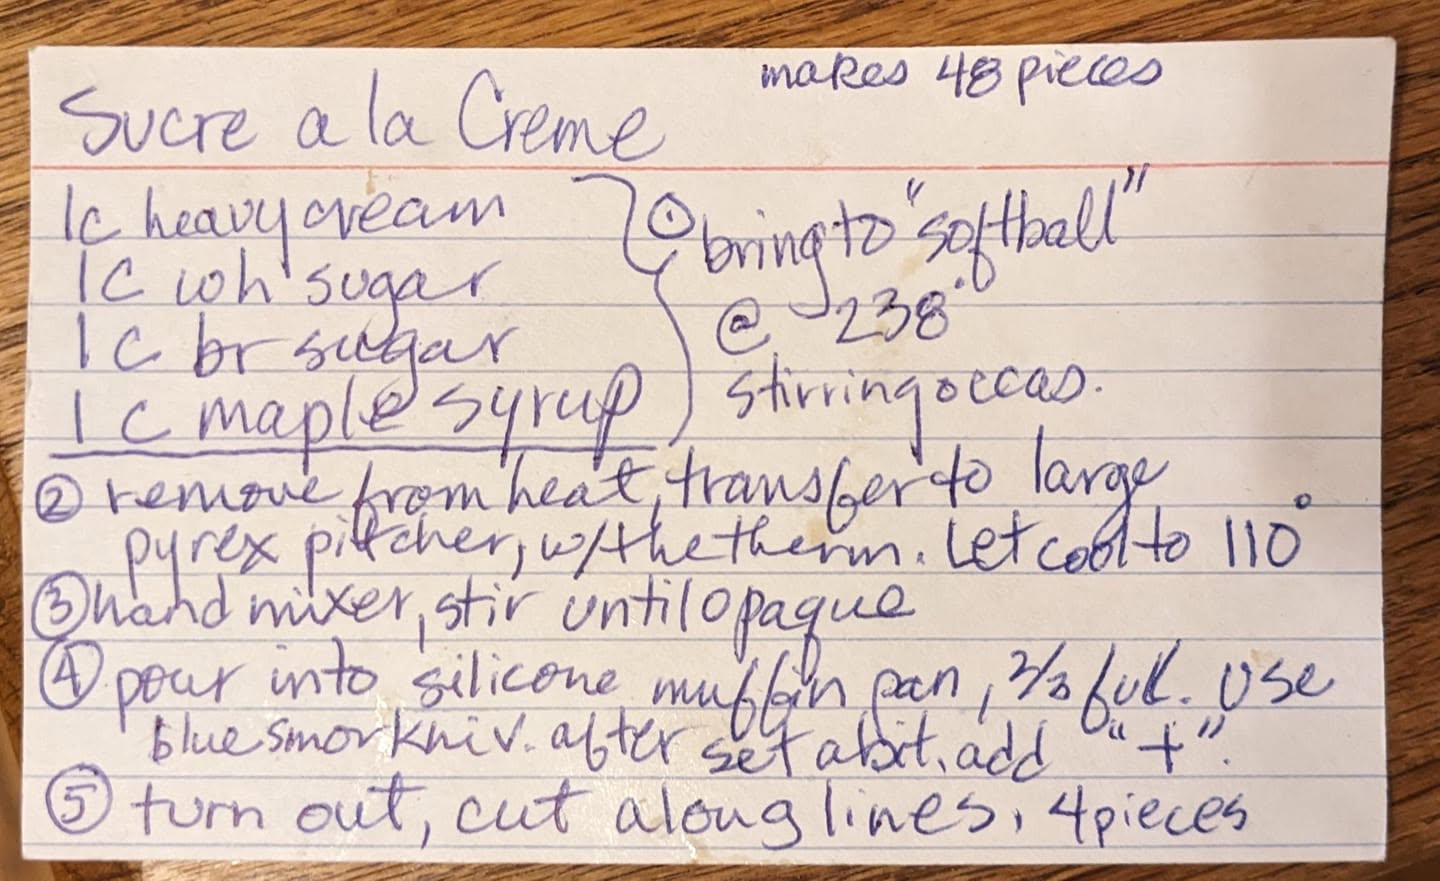 makes 48 pieces
Sucre a la Creme
1c heavy cream
1C wh sugar
1C br sugar
1C maple syrup
① bring to "softball"
@ 238°
stirring occas.
② remove from heat, transfer to large
pyrex pitcher, w/the therm. Let cool to 110°
③ hand mixer, stir until opaque
④ pour into silicone muffin pan, 2/3 full. Use
blue smorkniv. after set abit, add "+".
⑤ turn out, cut along lines, 4 pieces